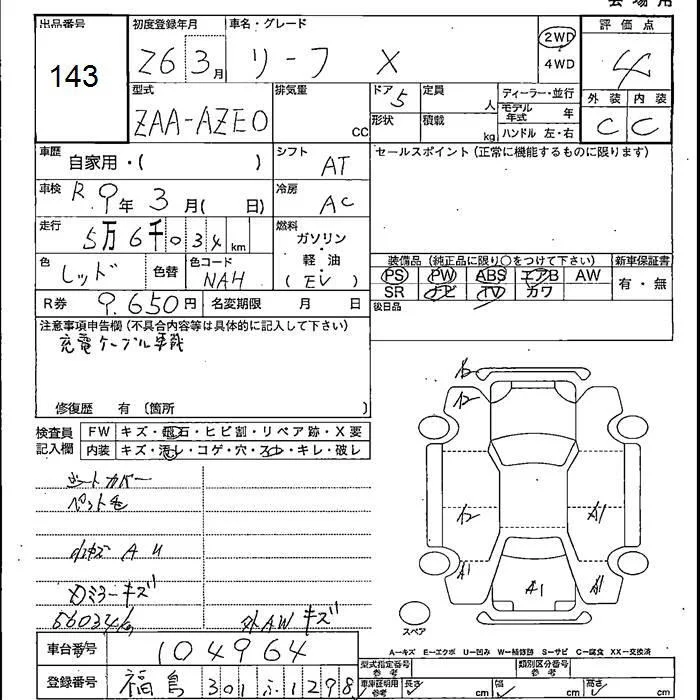 会場用
出品番号 初度登録年月 車名・グレード 評価点
143
26 3月 リーフ X 2WD 4WD 4
型式 排気量 ドア 定員 ディーラー・並行 外装 内装
ZAA-AZE0 CC 5 人 モデル年式 年 C C
形状 積載 kg ハンドル 左・右
車歴 自家用・( ) シフト AT セールスポイント(正常に機能するものに限ります)
車検 R.9年3月( 日) 冷房 AC
走行 5万6千034km 燃料 ガソリン・軽油 (EV)
色 レッド 色替 色コード NAH 装備品(純正品に限り○をつけて下さい) 新車保証書
PS PW ABS エアB AW 有・無
SR ナビ TV カワ
R券 9,650円 名変期限 月 日 後日品
注意事項申告欄(不具合内容等は具体的に記入して下さい)
充電ケーブル車載
修復歴 有(箇所 )
検査員記入欄 FW キズ・飛石・ヒビ割・リペア跡・X要
内装 キズ・汚レ・コゲ・穴・スレ・キレ・破レ
シートカバー
ペット毛
小キズ A U
Dミラーキズ
56034k
外AWキズ
A2
A1
A1
A1
A1
スペア
A-キズ E-エクボ U-凹み W-補修跡 S-サビ C-腐食 XX-交換済
車台番号 104964
登録番号 福島 301 ふ 1298
型式指定番号 参考 類別区分番号 参考
車庫証明用 参考 長さ cm 幅 cm 高さ cm